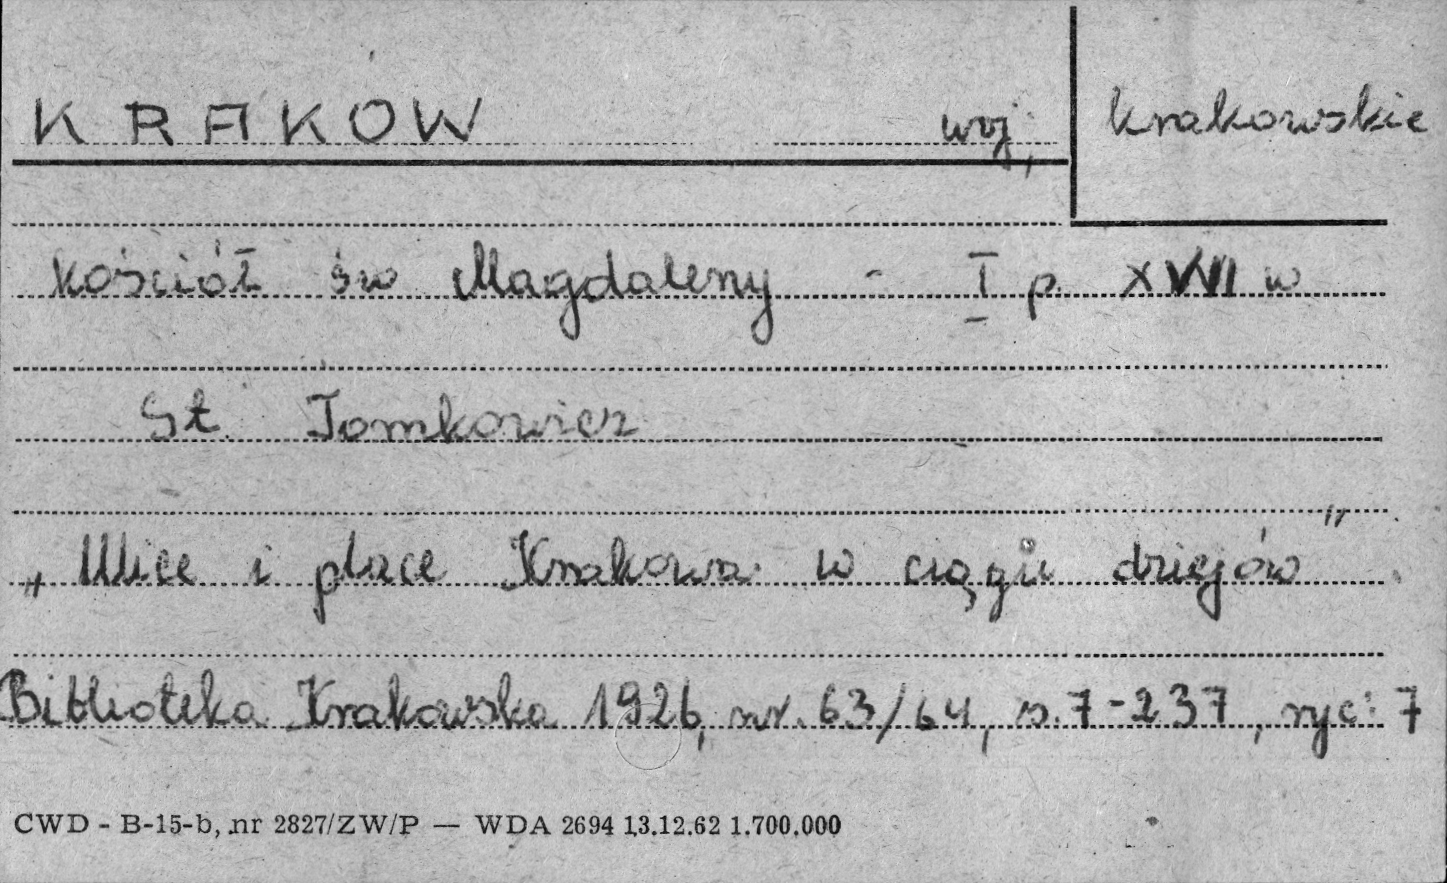 KRAKÓW woj, krakowskie
kościół św Magdaleny - I p. XVII w
St. Tomkowicz
„Ulice i place Krakowa w ciągu dziejów"
Biblioteka Krakowska 1926, nr. 63/64, s. 7-237, ryc: 7
CWD - B-15-b, nr 2827/ZW/P — WDA 2694 13.12.62 1.700.000